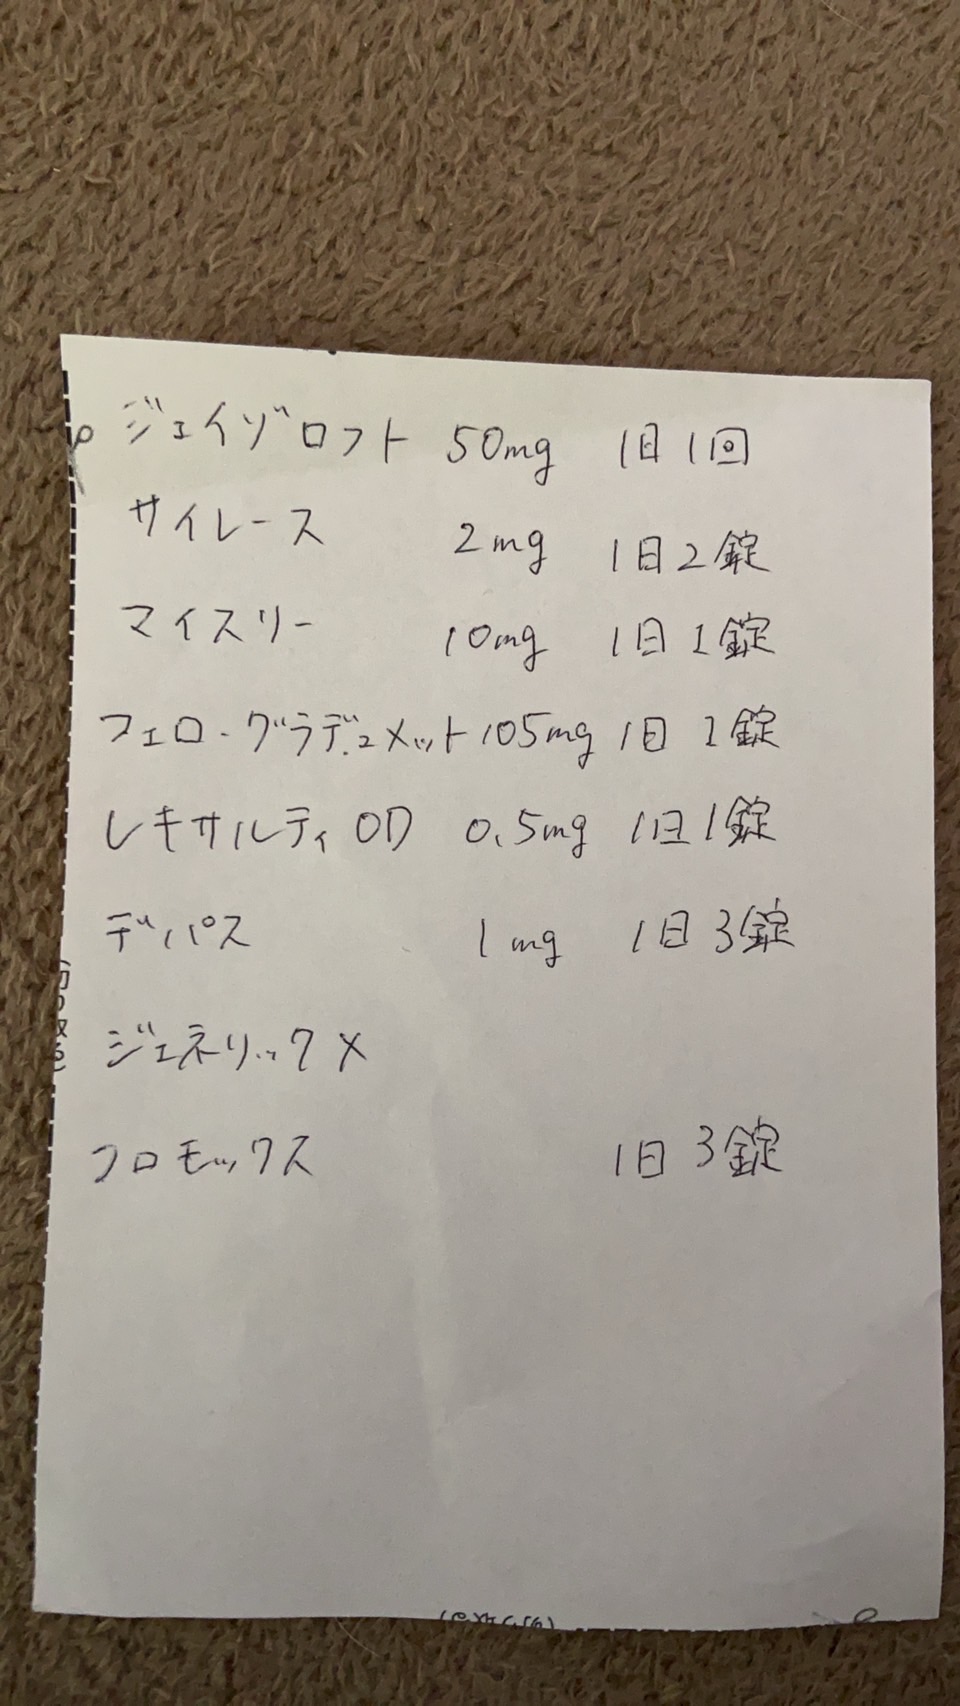 ジェイゾロフト 50mg 1日1回
サイレース 2mg 1日2錠
マイスリー 10mg 1日1錠
フェロ・グラデュメット 105mg 1日1錠
レキサルティOD 0.5mg 1日1錠
デパス 1mg 1日3錠
ジェネリック×
フロモックス 1日3錠